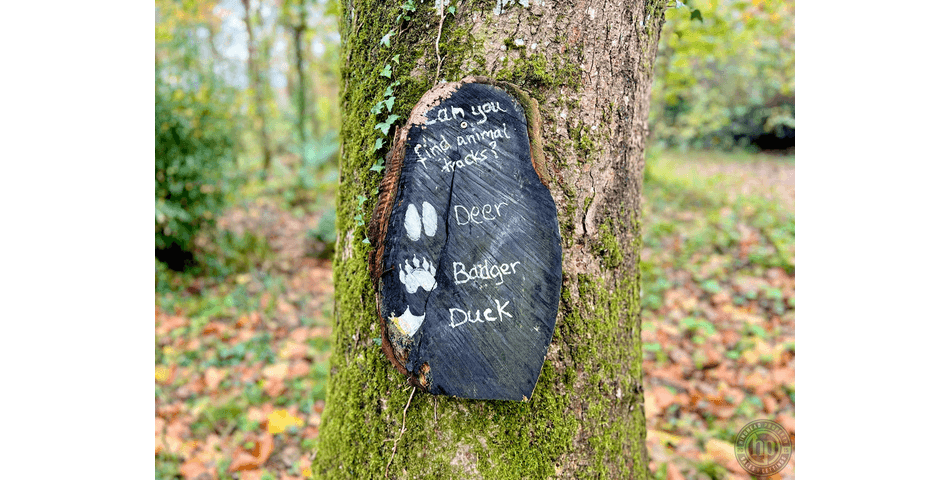 Can you
find animal
tracks?
Deer
Badger
Duck